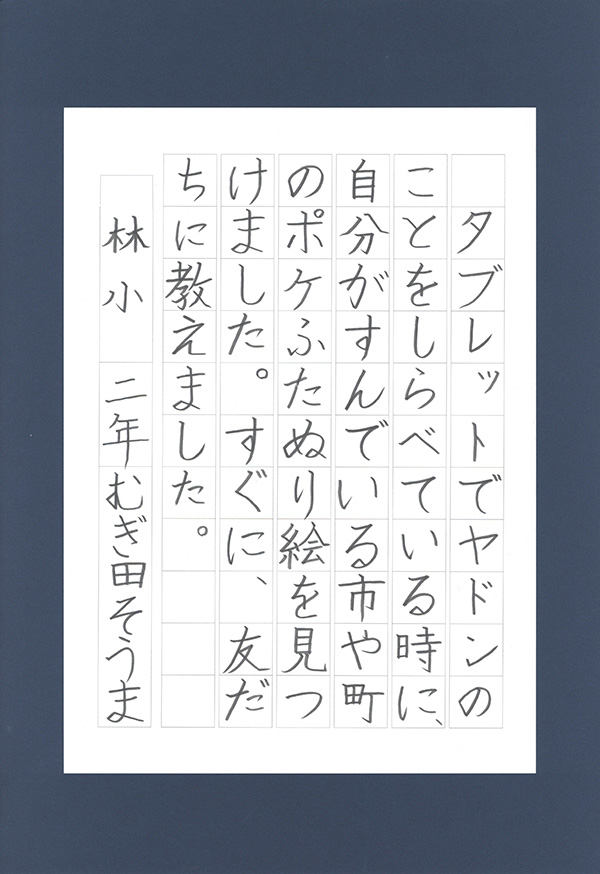 タブレットでヤドンの
ことをしらべている時に、
自分がすんでいる市や町
のポケふたぬり絵を見つ
けました。すぐに、友だ
ちに教えました。
林小 二年むぎ田そうま